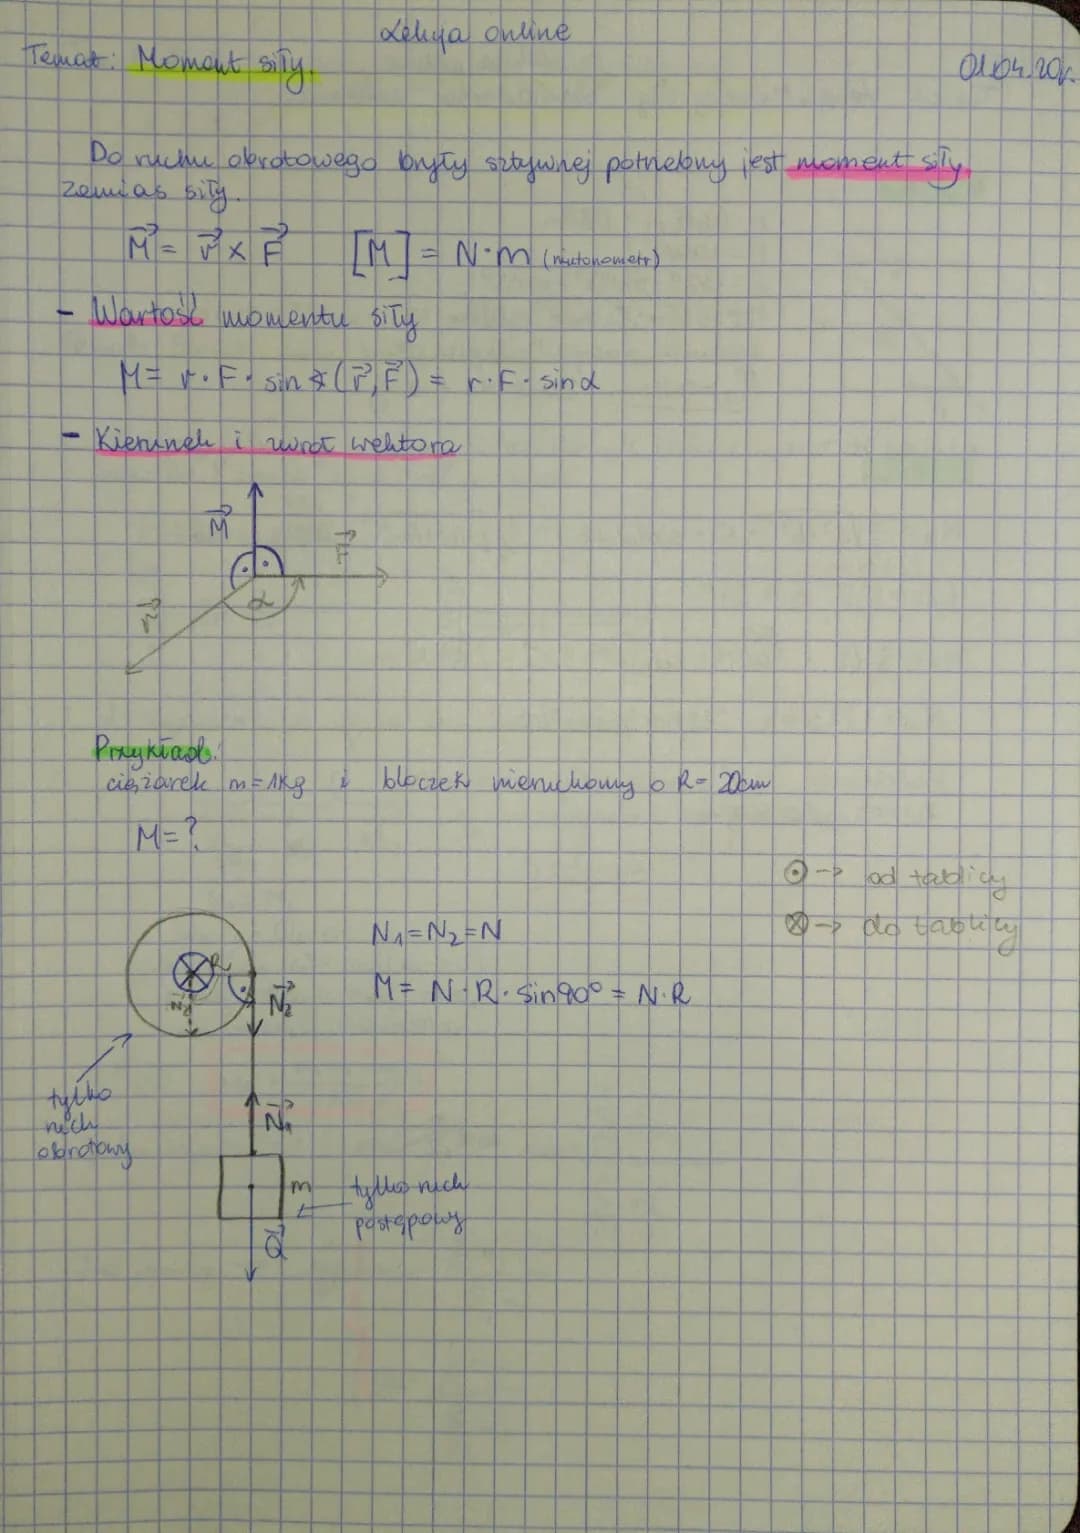 Lekcja online
Temat: Moment siły.
01.04.20r.
Do ruchu obrotowego bryły sztywnej potrzebny jest moment siły
zamias siły.
M⃗ = r⃗ × F⃗ [M] = N·m (niutonometr)
- Wartość momentu siły
M = r · F · sin∢(r⃗, F⃗) = r·F·sinα
- Kierunek i zwrot wektora
M⃗
F⃗
α
r⃗
Przykład:
ciężarek m=1kg i bloczek nieruchomy o R= 20cm
M=?
⊙ -> od tablicy
⊗ -> do tablicy
N₁=N₂=N
M= N·R·sin90° = N·R
R
N⃗₂
N⃗₂
tylko
ruch
obrotowy
N⃗₁
m
tylko ruch
postępowy
Q⃗